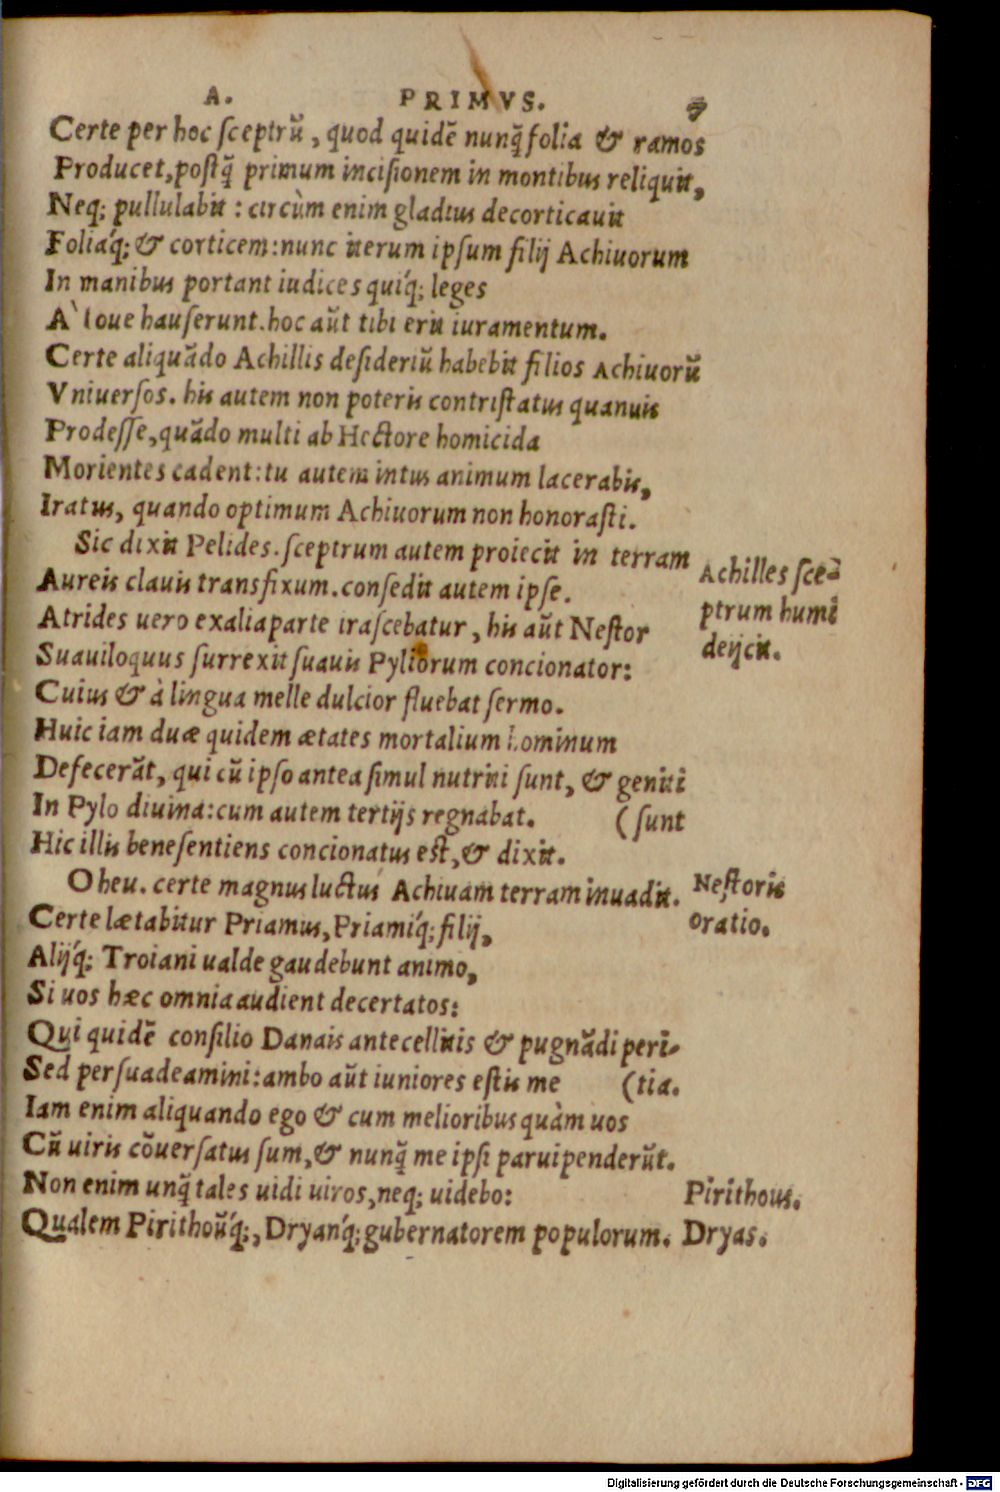 A. PRIMVS. 9
Certe per hoc sceptrũ, quod quidẽ nunq̃ folia & ramos
Producet, postq̃ primum incisionem in montibus reliquit,
Neq; pullulabit : circùm enim gladius decorticauit
Foliaq́; & corticem: nunc iterum ipsum filij Achiuorum
In manibus portant iudices quiq́; leges
A` Ioue hauserunt. hoc aũt tibi erit iuramentum.
Certe aliquãdo Achillis desideriũ habebit filios Achiuorũ
Vniuersos. his autem non poteris contristatus quanuis
Prodesse, quãdo multi ab Hectore homicida
Morientes cadent: tu autem intus animum lacerabis,
Iratus, quando optimum Achiuorum non honorasti.
Sic dixit Pelides. sceptrum autem proiecit in terram
Achilles sce-
ptrum humi
deijcit.
Aureis clauis transfixum. consedit autem ipse.
Atrides uero ex alia parte irascebatur, his aũt Nestor
Suauiloquus surrexit suauis Pyliorum concionator:
Cuius & à lingua melle dulcior fluebat sermo.
Huic iam duæ quidem ætates mortalium hominum
Defecerãt, qui cũ ipso antea simul nutriti sunt, & geniti
In Pylo diuina: cum autem tertijs regnabat. (sunt
Hic illis benesentiens concionatus est, & dixit.
O heu. certe magnus luctus Achiuam terram inuadit.
Nestoris
oratio.
Certe lætabitur Priamus, Priamiq́; filij,
Alijq́; Troiani ualde gaudebunt animo,
Si uos hæc omnia audient decertatos:
Qui quidẽ consilio Danais antecellitis & pugnãdi peri-
Sed persuadeamini: ambo aũt iuniores estis me (tia.
Iam enim aliquando ego & cum melioribus quàm uos
Cũ uiris cõuersatus sum, & nunq̃ me ipsi paruipenderũt.
Non enim unq̃ tales uidi uiros, neq; uidebo:
Pirithous.
Qualem Pirithoũq́;, Dryanq́; gubernatorem populorum.
Dryas.
Digitalisierung gefördert durch die Deutsche Forschungsgemeinschaft - DFG